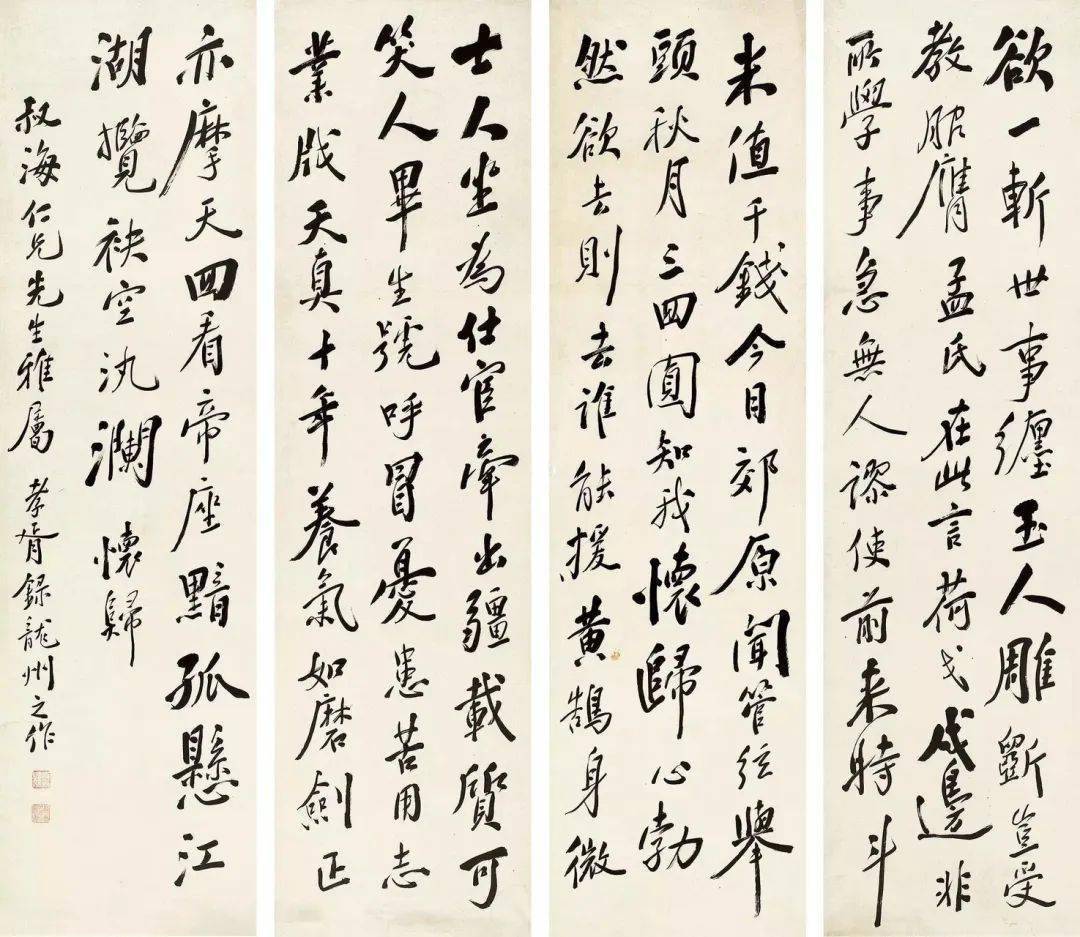 欲一斬世事纏玉人雕斵豈受
教服膺孟氏在此言荷戈戍邊非
所學事急無人謬使前來時斗
米值千錢今日郊原聞管弦舉
頭秋月三四圓知我懷歸心勃
然欲去則去誰能援黃鵠身微
士人坐為仕宦牽出疆載質可
笑人畢生號呼冒憂患苦用志
業戕天真十年養氣如磨劍正
亦摩天四看帝座黯孤懸江
湖攬袂空汍瀾 懷歸
叔海仁兄先生雅屬 孝胥錄龍州之作